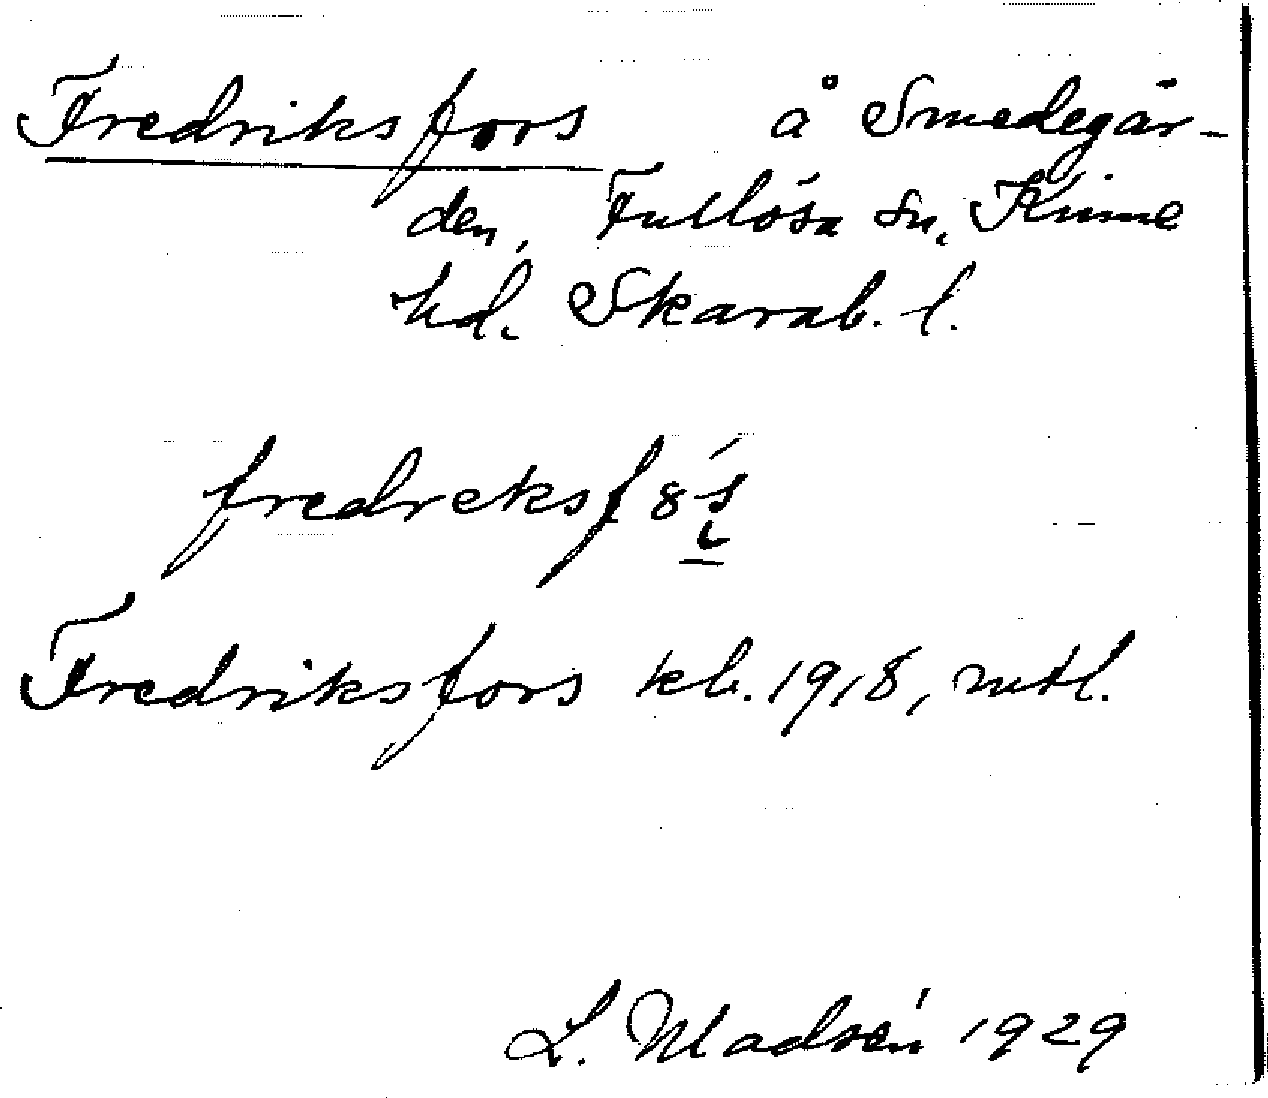 Fredriksfors å Smedegår-
den, Fullösa sn, Kinne
hd. Skarab. l.
fredreksf8s
Fredriksfors kb. 1918, mtl.
L. Madsén 1929